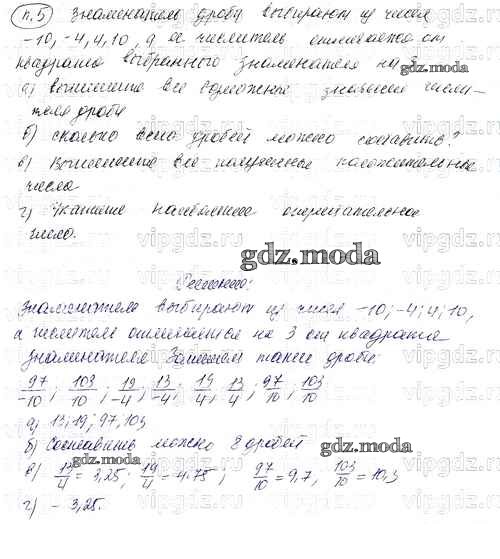 п.5) Знаменатель дроби выбирают из чисел
-10, -4, 4, 10, а ее числитель отличается от
квадрата выбранного знаменателя на 3.
а) выпишите все возможные значения числи-
теля дроби
б) сколько всего дробей можно составить?
в) Выпишите все полученные положительные
числа
г) Укажите наибольшее отрицательное
число.
gdz.moda
Решение:
Знаменатель выбирают из чисел -10; -4; 4; 10,
а числитель отличается на 3 от квадрата
знаменателя. Запишем такие дроби:
97/-10; 103/-10; 19/-4; 13/-4; 19/4; 13/4; 97/10; 103/10
а) 13; 19; 97; 103
б) Составить можно 8 дробей
в) 13/4 = 3,25; 19/4 = 4.75; 97/10 = 9,7, 103/10 = 10,3
г) - 3,25.